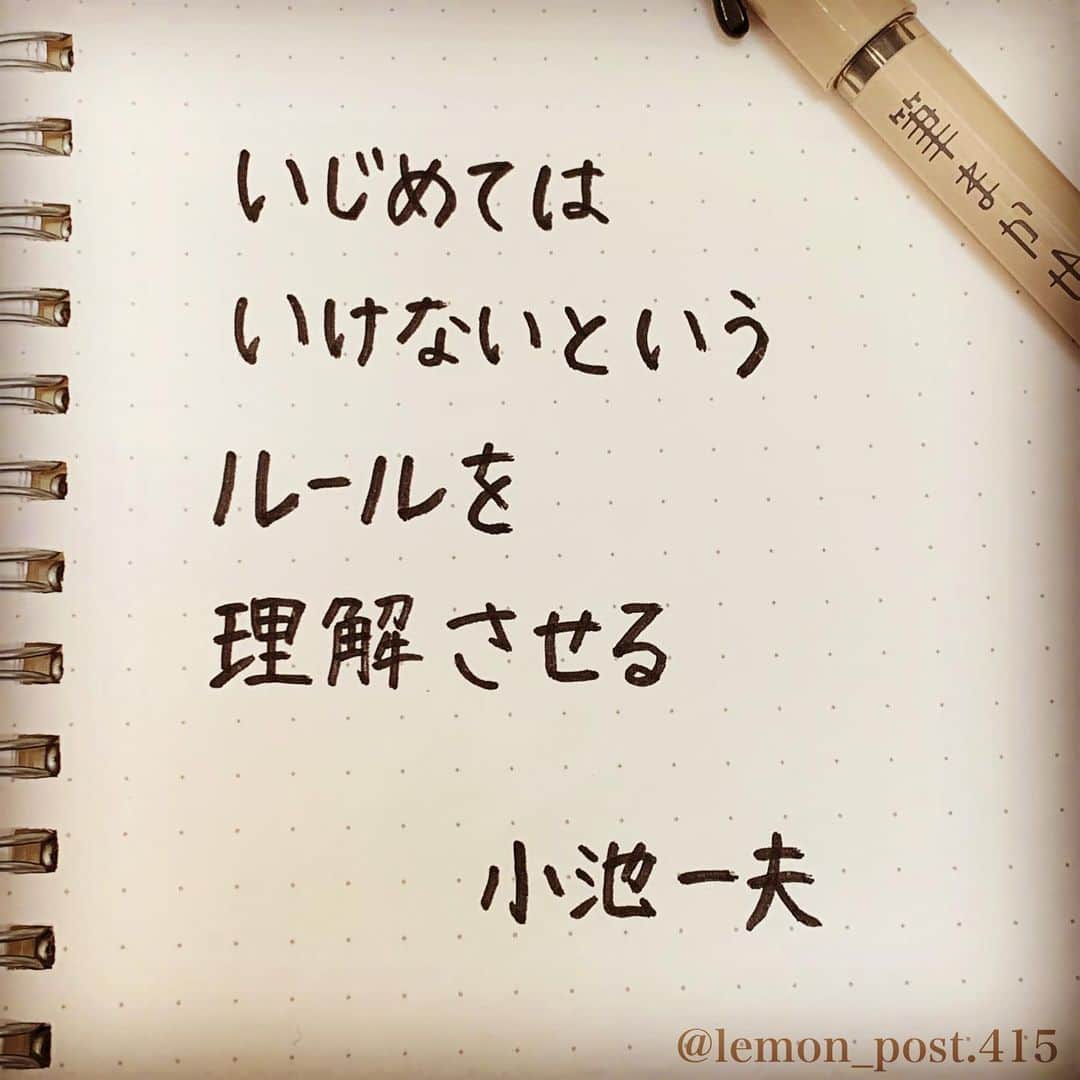 いじめては
いけないという
ルールを
理解させる
小池一夫
筆まかせ
@lemon_post.415